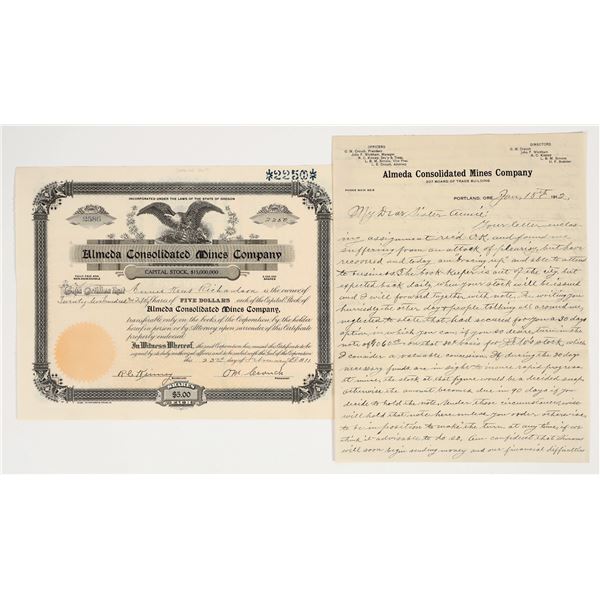 *2250*
INCORPORATED UNDER THE LAWS OF THE STATE OF OREGON
2586
2250
Almeda Consolidated Mines Company
CAPITAL STOCK, $15,000,000
FULLY PAID AND NON-ASSESSABLE
3,000,000 SHARES
This Certifies that Annie Kent Richardson is the owner of
Twenty two hundred & fifty Shares of FIVE DOLLARS each of the Capital Stock of
Almeda Consolidated Mines Company,
transferable only on the books of the Corporation by the holder
hereof in person or by Attorney upon surrender of this Certificate
properly endorsed.
In Witness Whereof, the said Corporation has caused this Certificate to be
signed by its duly authorized officers and to be sealed with the Seal of the Corporation
this 23rd day of February A.D. 1911
R C Kinney
O M Crouch
SHARES
$5.00
EACH
OFFICERS
O. M. Crouch, President
John F. Wickham, Manager
R. C. Kinney, Sec'y & Treas.
DIRECTORS
O. M. Crouch
John F. Wickham
R. C. Kinney
Almeda Consolidated Mines Company
207 BOARD OF TRADE BUILDING
PORTLAND, ORE. Jan, 18th 1912
My Dear Sister Annie:
Your letter enclos
ing assignment rec'd OK and found me
suffering from an attack of pleurisy, but have
recovered and today am "boxing up" and able to attend
to business. The book keeper is out of the city, but
expected back daily when your stock will be issued
and I will forward together with note. In writing you
hurriedly the other day, people talking all around me,
neglected to state that, had secured for you a 30 days
option in which you can, if you so desire turn in the
note of on that 30 days basis for stock, which
I consider a valuable concession. If during the 30 days
necessary funds are in sight to insure rapid progress
at mine, the stock at that figure would be a decided snap,
otherwise the amount becomes due in 90 days if you
decide to hold the note. Under those circumstances, will
will hold that note here unless you order otherwise,
to be in position to make the turn at any time, if we
think it advisable to do so. Am confident that
will soon begin sending money and our financial difficulties